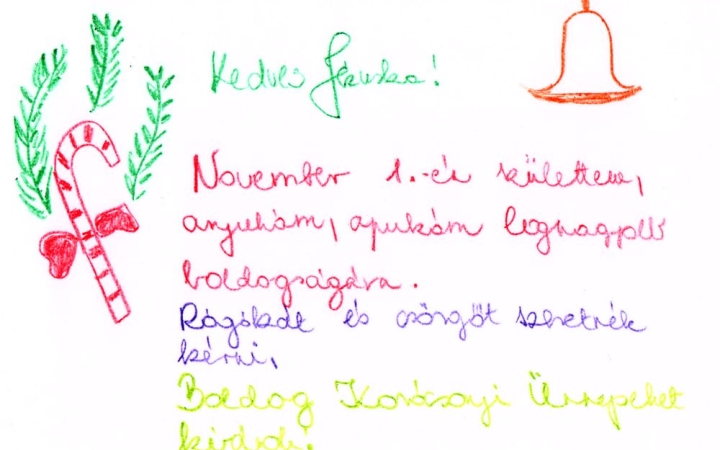 Kedves Jézuska!
November 1.-én születtem,
anyukám, apukám legnagyobb
boldogságára.
Rágókát és csörgőt szeretnék
kérni.
Boldog Karácsonyi Ünnepeket